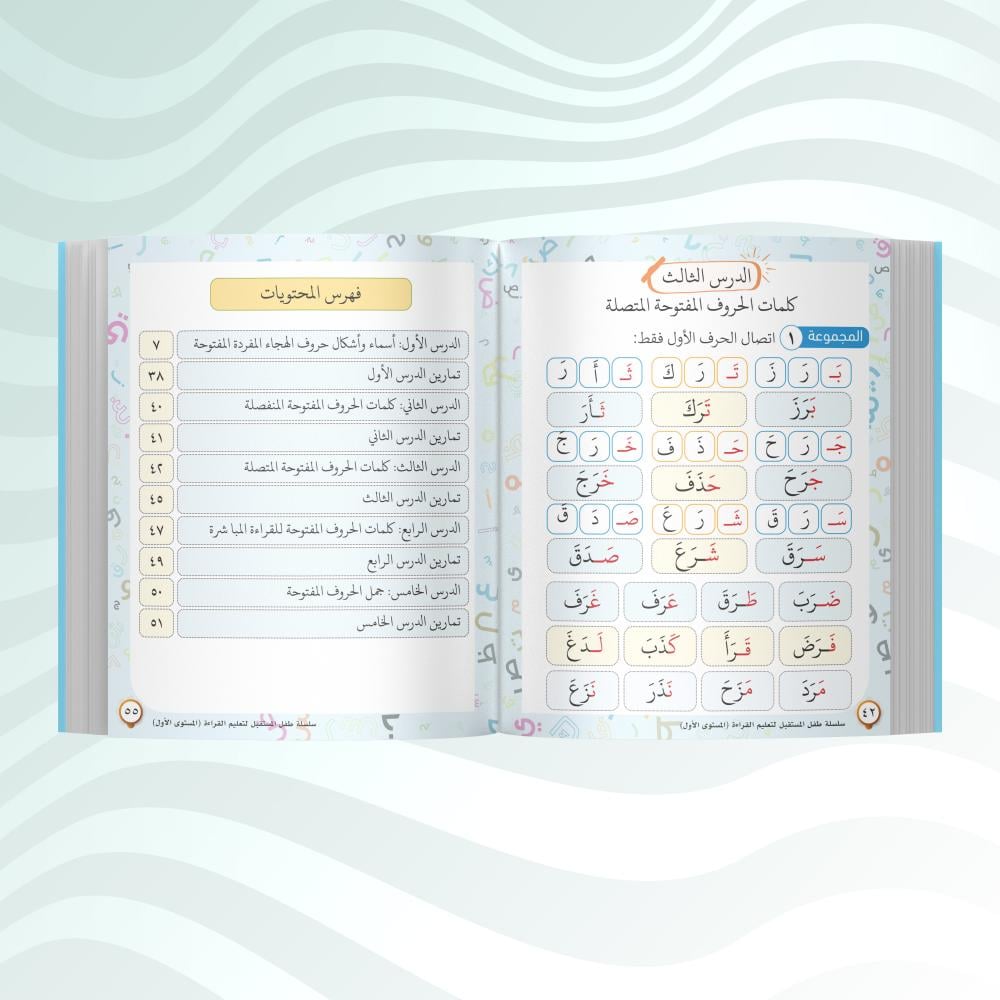 الدرس الثالث
كلمات الحروف المفتوحة المتصلة
المجموعة ١ اتصال الحرف الأول فقط:
بَـ رَ زَ تَـ رَ كَ ثَـ أَ رَ
بَرَزَ تَرَكَ ثَـأَرَ
جَـ رَ حَ حَـ ذَ فَ خَـ رَ جَ
جَرَحَ حَذَفَ خَرَجَ
سَـ رَ قَ شَـ رَ عَ صَـ دَ قَ
سَـرَقَ شَـرَعَ صَـدَقَ
ضَـرَبَ طَـرَقَ عَرَفَ غَرَفَ
فَـرَضَ قَـرَأَ كَذَبَ لَـدَغَ
مَرَدَ مَزَحَ نَذَرَ نَزَعَ
سلسلة طفل المستقبل لتعليم القراءة (المستوى الأول)
٤٢
فهرس المحتويات
الدرس الأول: أسماء وأشكال حروف الهجاء المفردة المفتوحة ٧
تمارين الدرس الأول ٣٨
الدرس الثاني: كلمات الحروف المفتوحة المنفصلة ٤٠
تمارين الدرس الثاني ٤١
الدرس الثالث: كلمات الحروف المفتوحة المتصلة ٤٢
تمارين الدرس الثالث ٤٥
الدرس الرابع: كلمات الحروف المفتوحة للقراءة المباشرة ٤٧
تمارين الدرس الرابع ٤٩
الدرس الخامس: جمل الحروف المفتوحة ٥٠
تمارين الدرس الخامس ٥١
سلسلة طفل المستقبل لتعليم القراءة (المستوى الأول)
٥٥